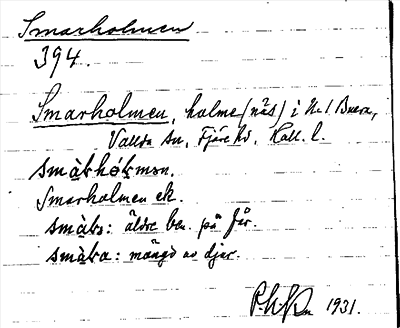 Smarholmen
394.
Smarholmen, holme (näs) i N. l. Buera,
Vallda sn, Fjäre hd, Hall. l.
smàbhòkmən.
Smarholmen ek.
smàbs: äldre ben. på får.
smàba: mängd av djur.
1931.